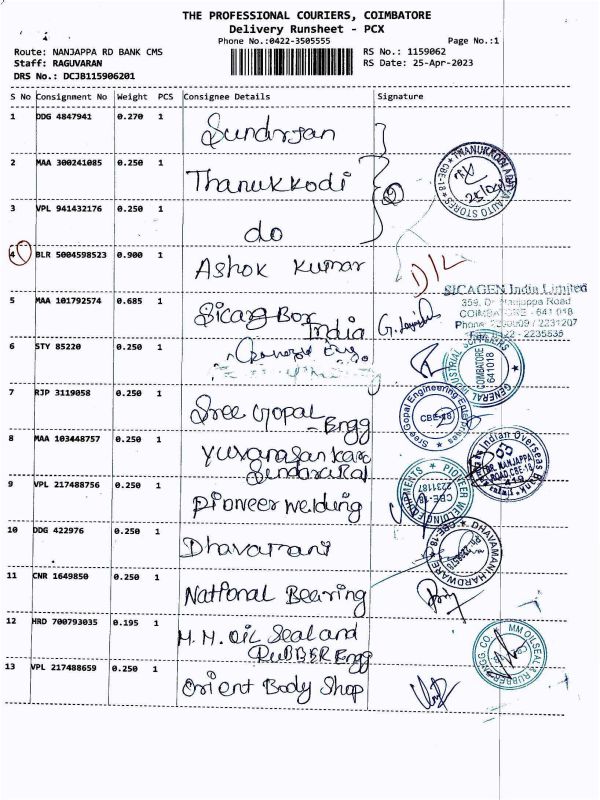 THE PROFESSIONAL COURIERS, COIMBATORE
Delivery Runsheet - PCX
Phone No.:0422-3505555 Page No.:1
Route: NANJAPPA RD BANK CMS RS No.: 1159062
Staff: RAGUVARAN RS Date: 25-Apr-2023
DRS No.: DCJB115906201
S No Consignment No Weight PCS Consignee Details Signature
1 DDG 4847941 0.270 1 Sundrjan
2 MAA 300241085 0.250 1 Thanukkodi
3 VPL 941432176 0.250 1 do
4 BLR 5004598523 0.900 1 Ashok Kumar D/L
5 MAA 101792574 0.685 1 Sicag Bor
India
SICAGEN India Limited
359, Dr Nanjappa Road
COIMBATORE - 641 018
6 STY 85220 0.250 1
GENERAL COIMBATORE 641018
7 RJP 3119058 0.250 1 Sree Gopal
Engg
Sree Gopal Engineering CBE-18
8 MAA 103448757 0.250 1
Indian Overseas Bank
DR. NANJAPPA
ROAD, CBE-18
9 VPL 217488756 0.250 1 Pioneer Welding
PIONEER WELDING CBE-18
10 DDG 422976 0.250 1 Dhavamani
DHAVAMANI HARDWARE CBE-18
11 CNR 1649850 0.250 1 National Bearing
12 HRD 700793035 0.195 1 M.M. Oil Seal and
RUBBER Engg
MM OIL SEALS RUBBER ENGG. CO.
13 VPL 217488659 0.250 1 Orient Body Shop